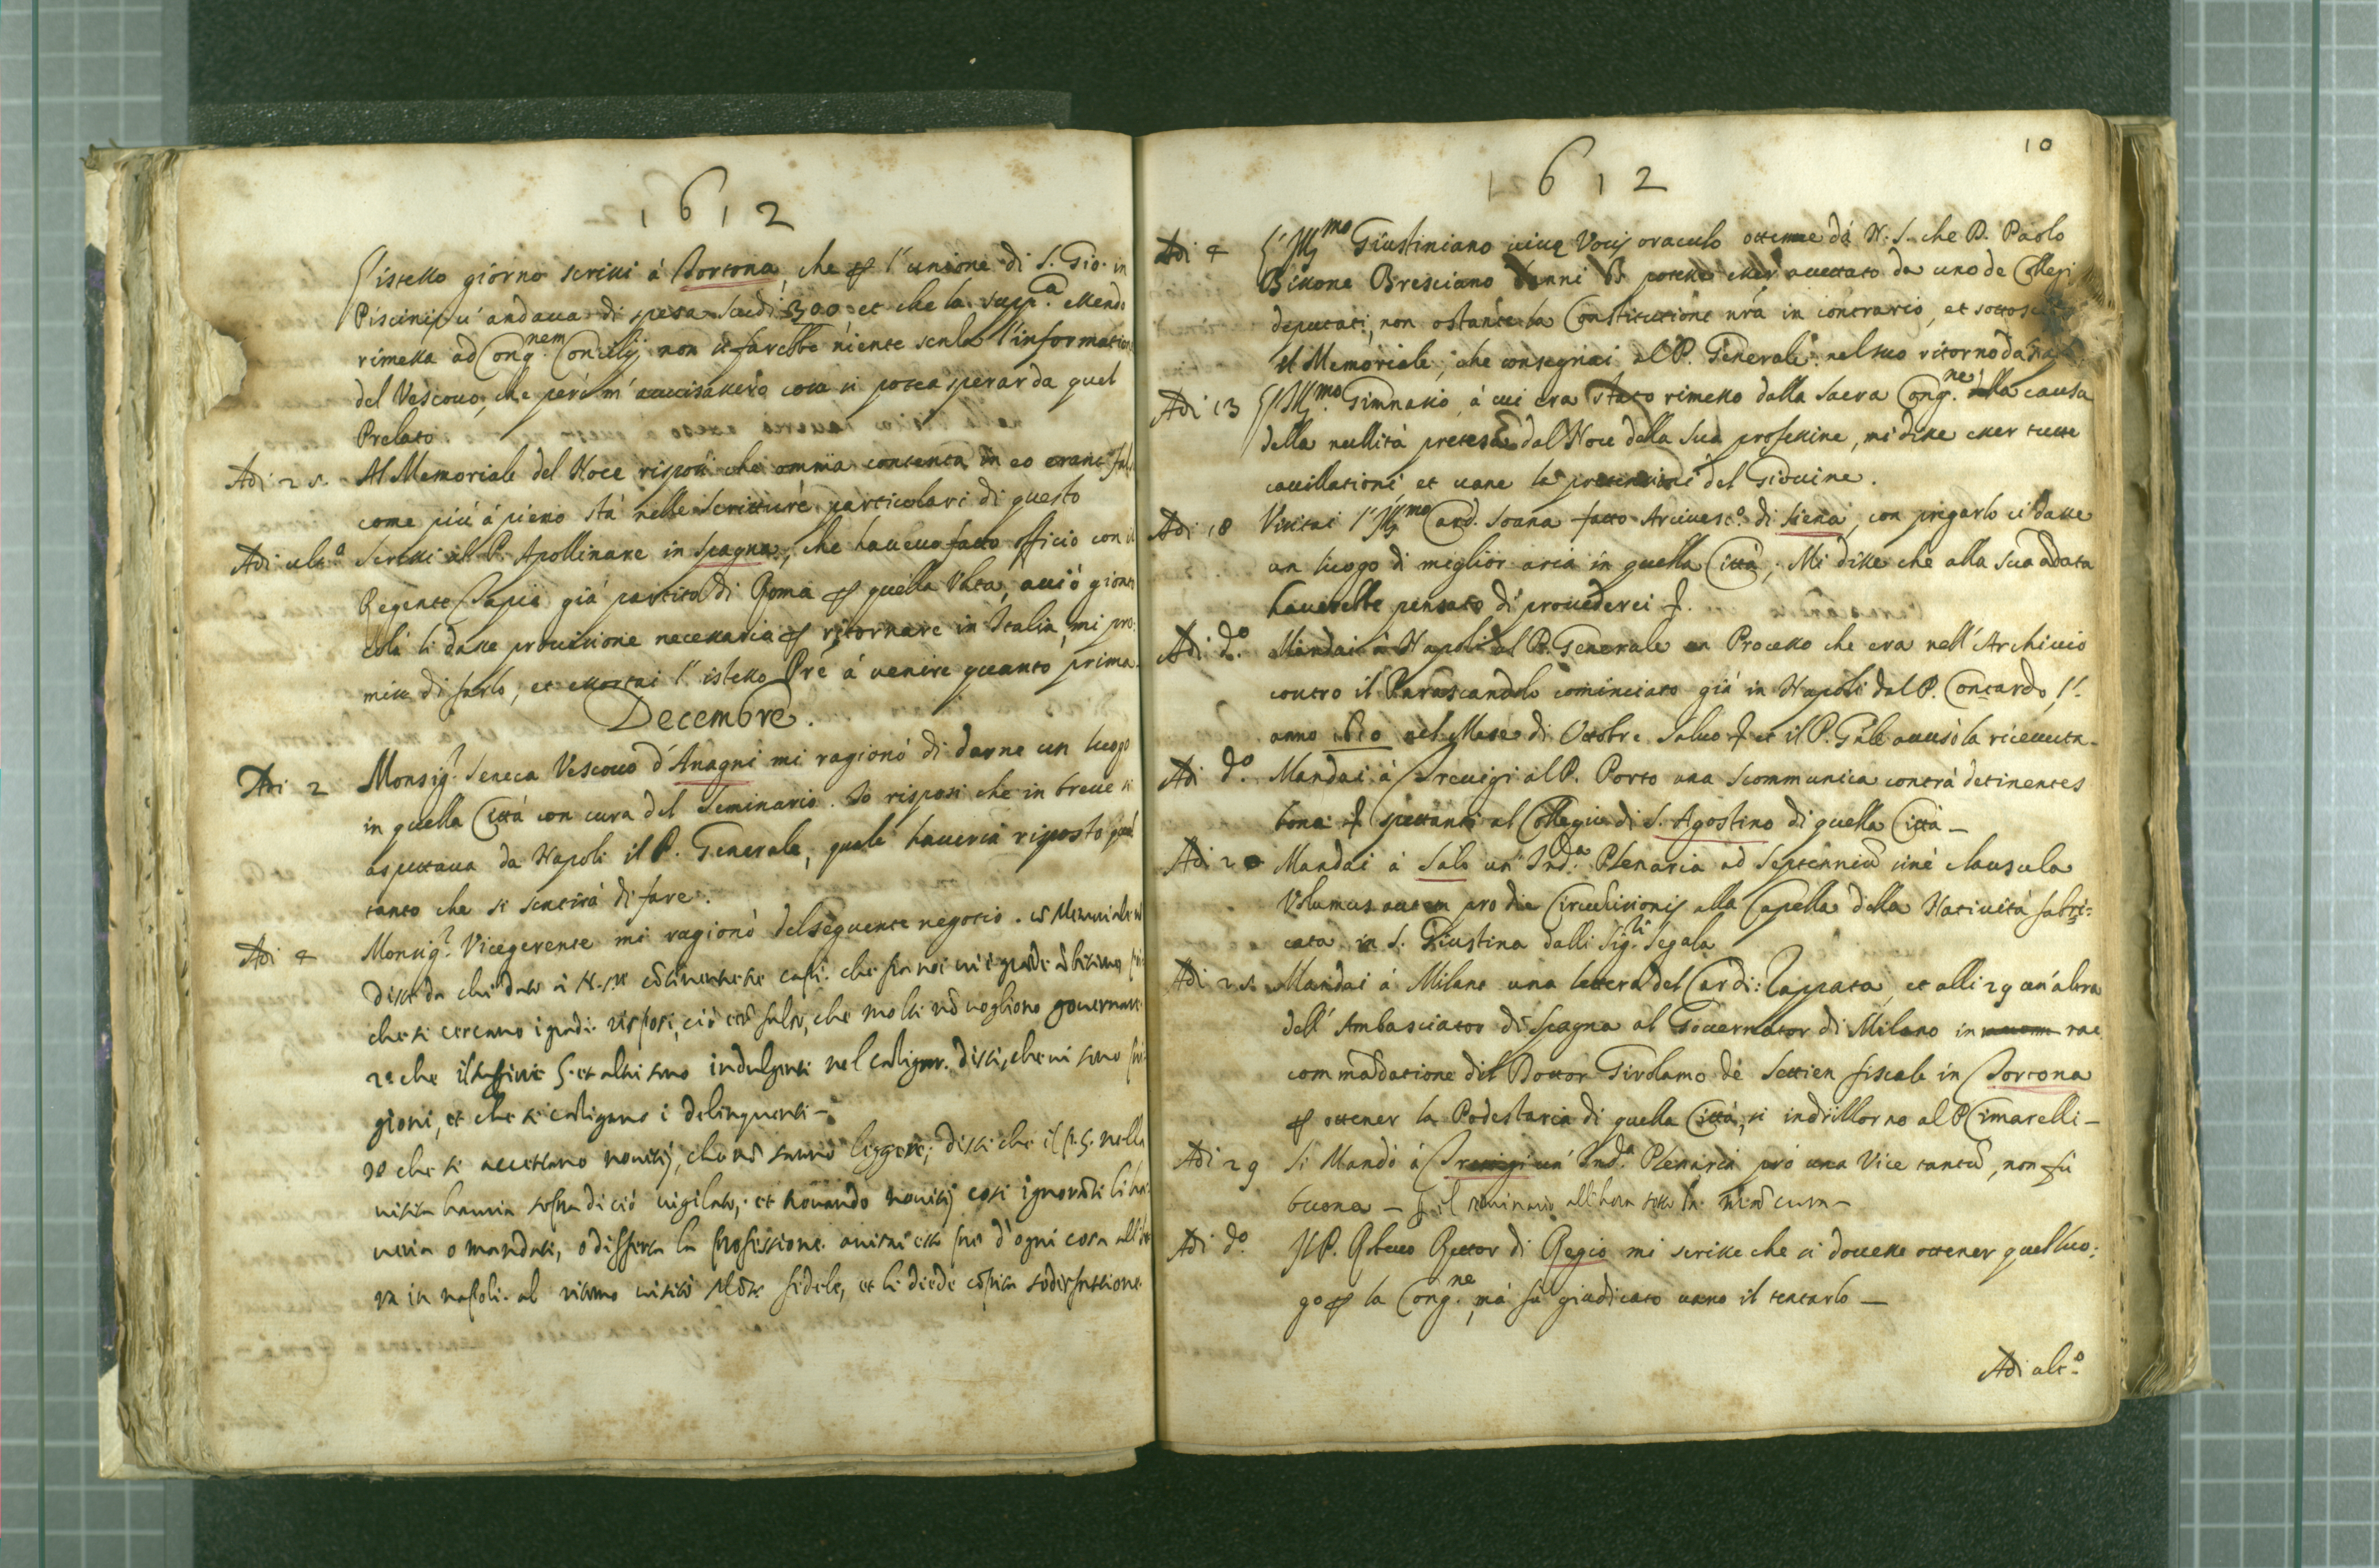 1612
L'istesso giorno scrissi à Tortona, che p l'unione di S. Gio. in
Piscinis u' andaua di spesa scudi 300 et che la supp.ca essendo
rimessa ad Cong.nem Concilij non si farebbe niente senza l'informatione
del Vescouo, che però m' auuisassero cosa si potea sperar da quel
Prelato.
Adi 25. Al Memoriale del Noce risposi che omnia contenta in eo erant falsa
come più à pieno stà nelle scritture particolari di questo
Adi ult.a Scrissi al P. Apollinare in Spagna, che haueuo fatto officio con il
Regente Tapia già partito di Roma p quella Volta, acciò gionto
colà li dasse prouisione necessaria p ritornare in Italia, mi pro:
mise di farlo, et essortai l' istesso Pre à venire quanto prima.
Decembre.
Adi 2 Monsig.r Seneca Vescouo d'Anagni mi ragionò di darne un luogo
in quella Città con cura del Seminario. Io risposi che in breue si
aspettaua da Napoli il P. Generale, quale haueria risposto
tanto che si sentirà di fare.
Adi 4 Monsig.r Vicegerente mi ragionò del seguente negotio.
che si cercano i gradi risposi, ciò esser falso, che molti nõ uogliono gouernare
2.o che il et altri sono indulgenti nel castigar. dissi, che ui sono pri
gioni, et che si castigano i delinquenti -
3o che si accettano nouitij, che nõ sanno leggere; dissi che il P. G. nella
uisita hauia sopra di ciò uigilato, et trouando nouitij così ignorãti li ha
ueria o mandati, o differita la professione. auisai esso pre d'ogni cosa
ra in napoli. al ritorno uisitò Mõsr fidele, et li diede sodisfattione.
1612
10
Adi 4 L'Ill.mo Giustiniano uiuæ Vocis oraculo ottenne da N. S. che D. Paolo
Bissone Bresciano d'anni potesse esser accettato da uno de Collegi
deputati, non ostante la Constitutione nrã in contrario, et sottoscrisse
il Memoriale, che consegnai al P. Generale nel suo ritorno da Napoli
Adi 13 L'Ill.mo Gimnasio, à cui era stato rimesso dalla Sacra Cong.ne la causa
della nullità pretesa dal Noce della sua professione, mi disse esser tutte
cauillationi et uane le pretensioni del Giouine.
Adi 18 Visitai l'Ill.mo Card. Soana fatto Arciuesc.o di Siena, con pregarlo ci dasse
un luogo di miglior aria in quella Città; Mi disse che alla sua ãdata
hauerebbe pensato di prouederci
Adi d.o Mandai à Napoli al P. Generale un Processo che era nell' Archiuio
contro il Parascandolo cominciato già in Napoli dal P. Contardo l'
anno 1610 nel Mese di Ottobre et il P. Gñle auuisò la riceuuta.
Adi d.o Mandai à Treuigi al P. Porto una Scommunica contrà detinentes
bona spettanti al Collegio di S. Agostino di quella Città -
Adi 20 Mandai à Salò un' Ind.a Plenaria ad Septenniũ sine clausula
Volumus autem pro die Circũcisionis alla Capella della Natiuità fabri:
cata in S. Giustina dalli Sig.ri Segala
Adi 25. Mandai à Milano una lettera del Card: Zappata, et alli 29 un' altra
dell' Ambasciator di Spagna al Gouernator di Milano in rac
commãdatione del Dottor Girolamo de Settien fiscale in Tortona
p ottener la Podestaria di quella Città, si indrizzorno al P. Cimarelli -
Adi 29 Si Mandò à Treuigi un' Ind.a Plenaria pro una Vice tantũ, non fù
buona - p il seminario all'hora sotto la nrã cura -
Adi d.o Il P. Rettor di Regio mi scrisse che si douesse ottener quel luo:
go p la Cong.ne, mà fù giudicato uano il tentarlo -
Adi ult.o